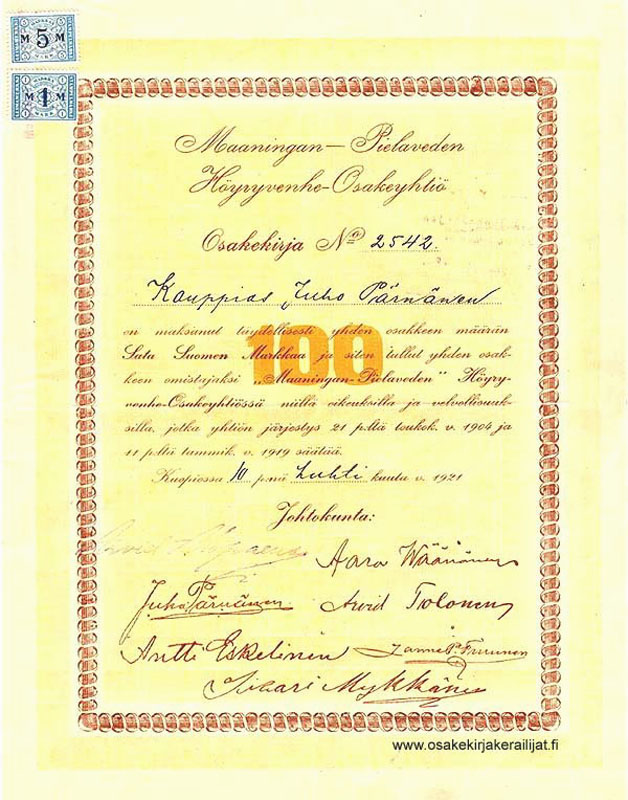 M 5 M
M 1 M
Maaningan—Pielaveden
Höyryvenhe-Osakeyhtiö
Osakekirja No 2542.
Kauppias Juho Pärnänen
on maksanut täydellisesti yhden osakkeen määrän
Sata Suomen Markkaa ja siten tullut yhden osak-
100
keen omistajaksi „Maaningan-Pielaveden" Höyry-
venhe-Osakeyhtiössä niillä oikeuksilla ja velvollisuuk-
silla, jotka yhtiön järjestys 21 p:ltä toukok. v. 1904 ja
11 p:ltä tammik. v. 1919 säätää.
Kuopiossa 10 p:nä Huhti kuuta v. 1921
Johtokunta:
Aaro Wäänänen
Juho Pärnänen Arvid Tolonen
Antti Eskelinen Janne P. Turunen
Mykkänen
www.osakekirjakerailijat.fi